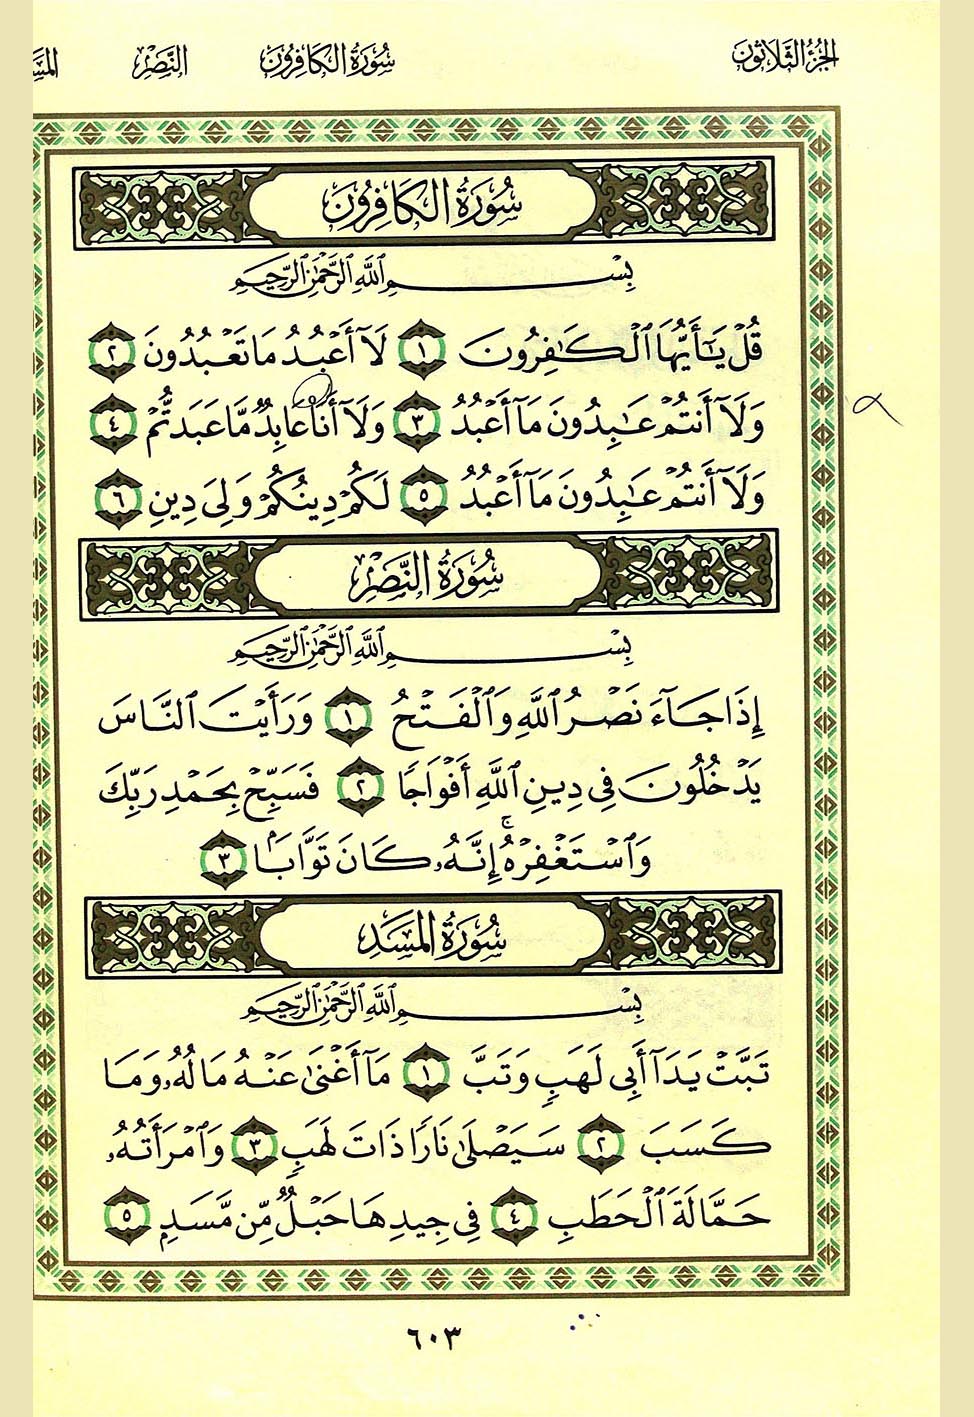 الجزء الثلاثون سورة الكافرون النصر
سُورَةُ الكَافِرُونَ
بِسْمِ ٱللَّهِ ٱلرَّحْمَٰنِ ٱلرَّحِيمِ
قُلْ يَـٰٓأَيُّهَا ٱلْكَـٰفِرُونَ ١ لَآ أَعْبُدُ مَا تَعْبُدُونَ ٢
وَلَآ أَنتُمْ عَـٰبِدُونَ مَآ أَعْبُدُ ٣ وَلَآ أَنَا۠ عَابِدٌ مَّا عَبَدتُّمْ ٤
وَلَآ أَنتُمْ عَـٰبِدُونَ مَآ أَعْبُدُ ٥ لَكُمْ دِينُكُمْ وَلِىَ دِينِ ٦
سُورَةُ النَّصْرِ
بِسْمِ ٱللَّهِ ٱلرَّحْمَٰنِ ٱلرَّحِيمِ
إِذَا جَآءَ نَصْرُ ٱللَّهِ وَٱلْفَتْحُ ١ وَرَأَيْتَ ٱلنَّاسَ
يَدْخُلُونَ فِى دِينِ ٱللَّهِ أَفْوَاجًا ٢ فَسَبِّحْ بِحَمْدِ رَبِّكَ
وَٱسْتَغْفِرْهُ ۚ إِنَّهُۥ كَانَ تَوَّابَۢا ٣
سُورَةُ المَسَدِ
بِسْمِ ٱللَّهِ ٱلرَّحْمَٰنِ ٱلرَّحِيمِ
تَبَّتْ يَدَآ أَبِى لَهَبٍ وَتَبَّ ١ مَآ أَغْنَىٰ عَنْهُ مَالُهُۥ وَمَا
كَسَبَ ٢ سَيَصْلَىٰ نَارًا ذَاتَ لَهَبٍ ٣ وَٱمْرَأَتُهُۥ
حَمَّالَةَ ٱلْحَطَبِ ٤ فِى جِيدِهَا حَبْلٌ مِّن مَّسَدٍۭ ٥
٦٠٣